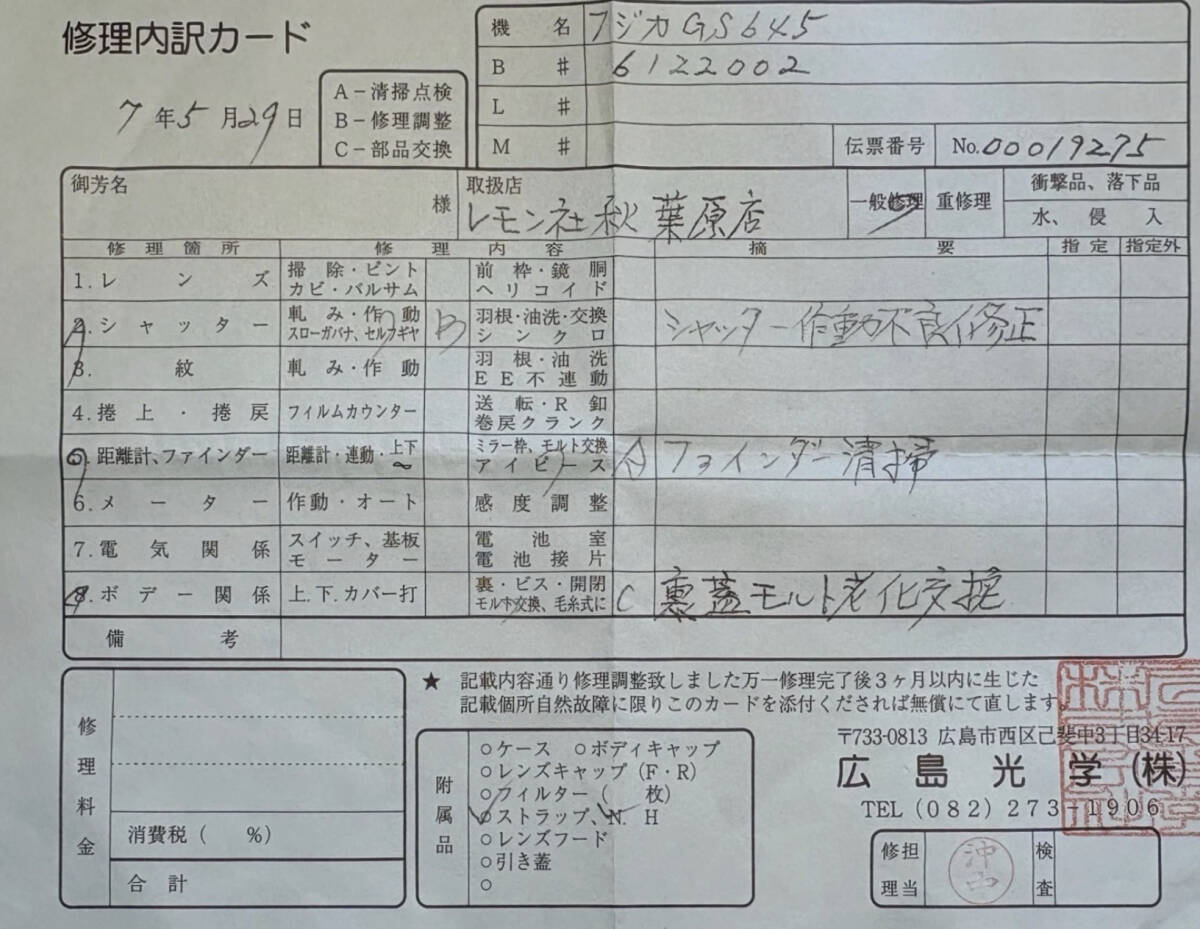 修理内訳カード
7年5月29日
A－清掃点検
B－修理調整
C－部品交換
機名 フジカGS645
B＃ 6122002
L＃
M＃ 伝票番号 No.00019275
御芳名 様 取扱店 レモン社秋葉原店 一般修理 重修理 衝撃品、落下品
水、侵入
修理箇所 修理内容 摘要 指定 指定外
1.レンズ 掃除・ピント 前枠・鏡胴
カビ・バルサム ヘリコイド
2.シャッター 軋み・作動 B 羽根・油洗・交換 シャッター作動不良修正
スローガバナ、セルフギヤ シンクロ
3.紋 軋み・作動 羽根・油洗
EE不連動
4.捲上・捲戻 フィルムカウンター 送転・R釦
巻戻クランク
5.距離計、ファインダー 距離計・連動・上下∞ ミラー枠、モルト交換 A ファインダー清掃
アイピース
6.メーター 作動・オート 感度調整
7.電気関係 スイッチ、基板 電池室
モーター 電池接片
8.ボデー関係 上.下.カバー打 裏・ビス・開閉 C 裏蓋モルト老化交換
モルト交換、毛糸式に
備考
修理料金
消費税（ %）
合計
★ 記載内容通り修理調整致しました万一修理完了後3ヶ月以内に生じた
記載個所自然故障に限りこのカードを添付くだされば無償にて直します。
附属品
○ケース ○ボディキャップ
○レンズキャップ（F・R）
○フィルター（ 枚）
○ストラップ、N. H
○レンズフード
○引き蓋
○
〒733-0813 広島市西区己斐中3丁目34-17
広島光学(株)
TEL(082)273-1906
修理担当 検査